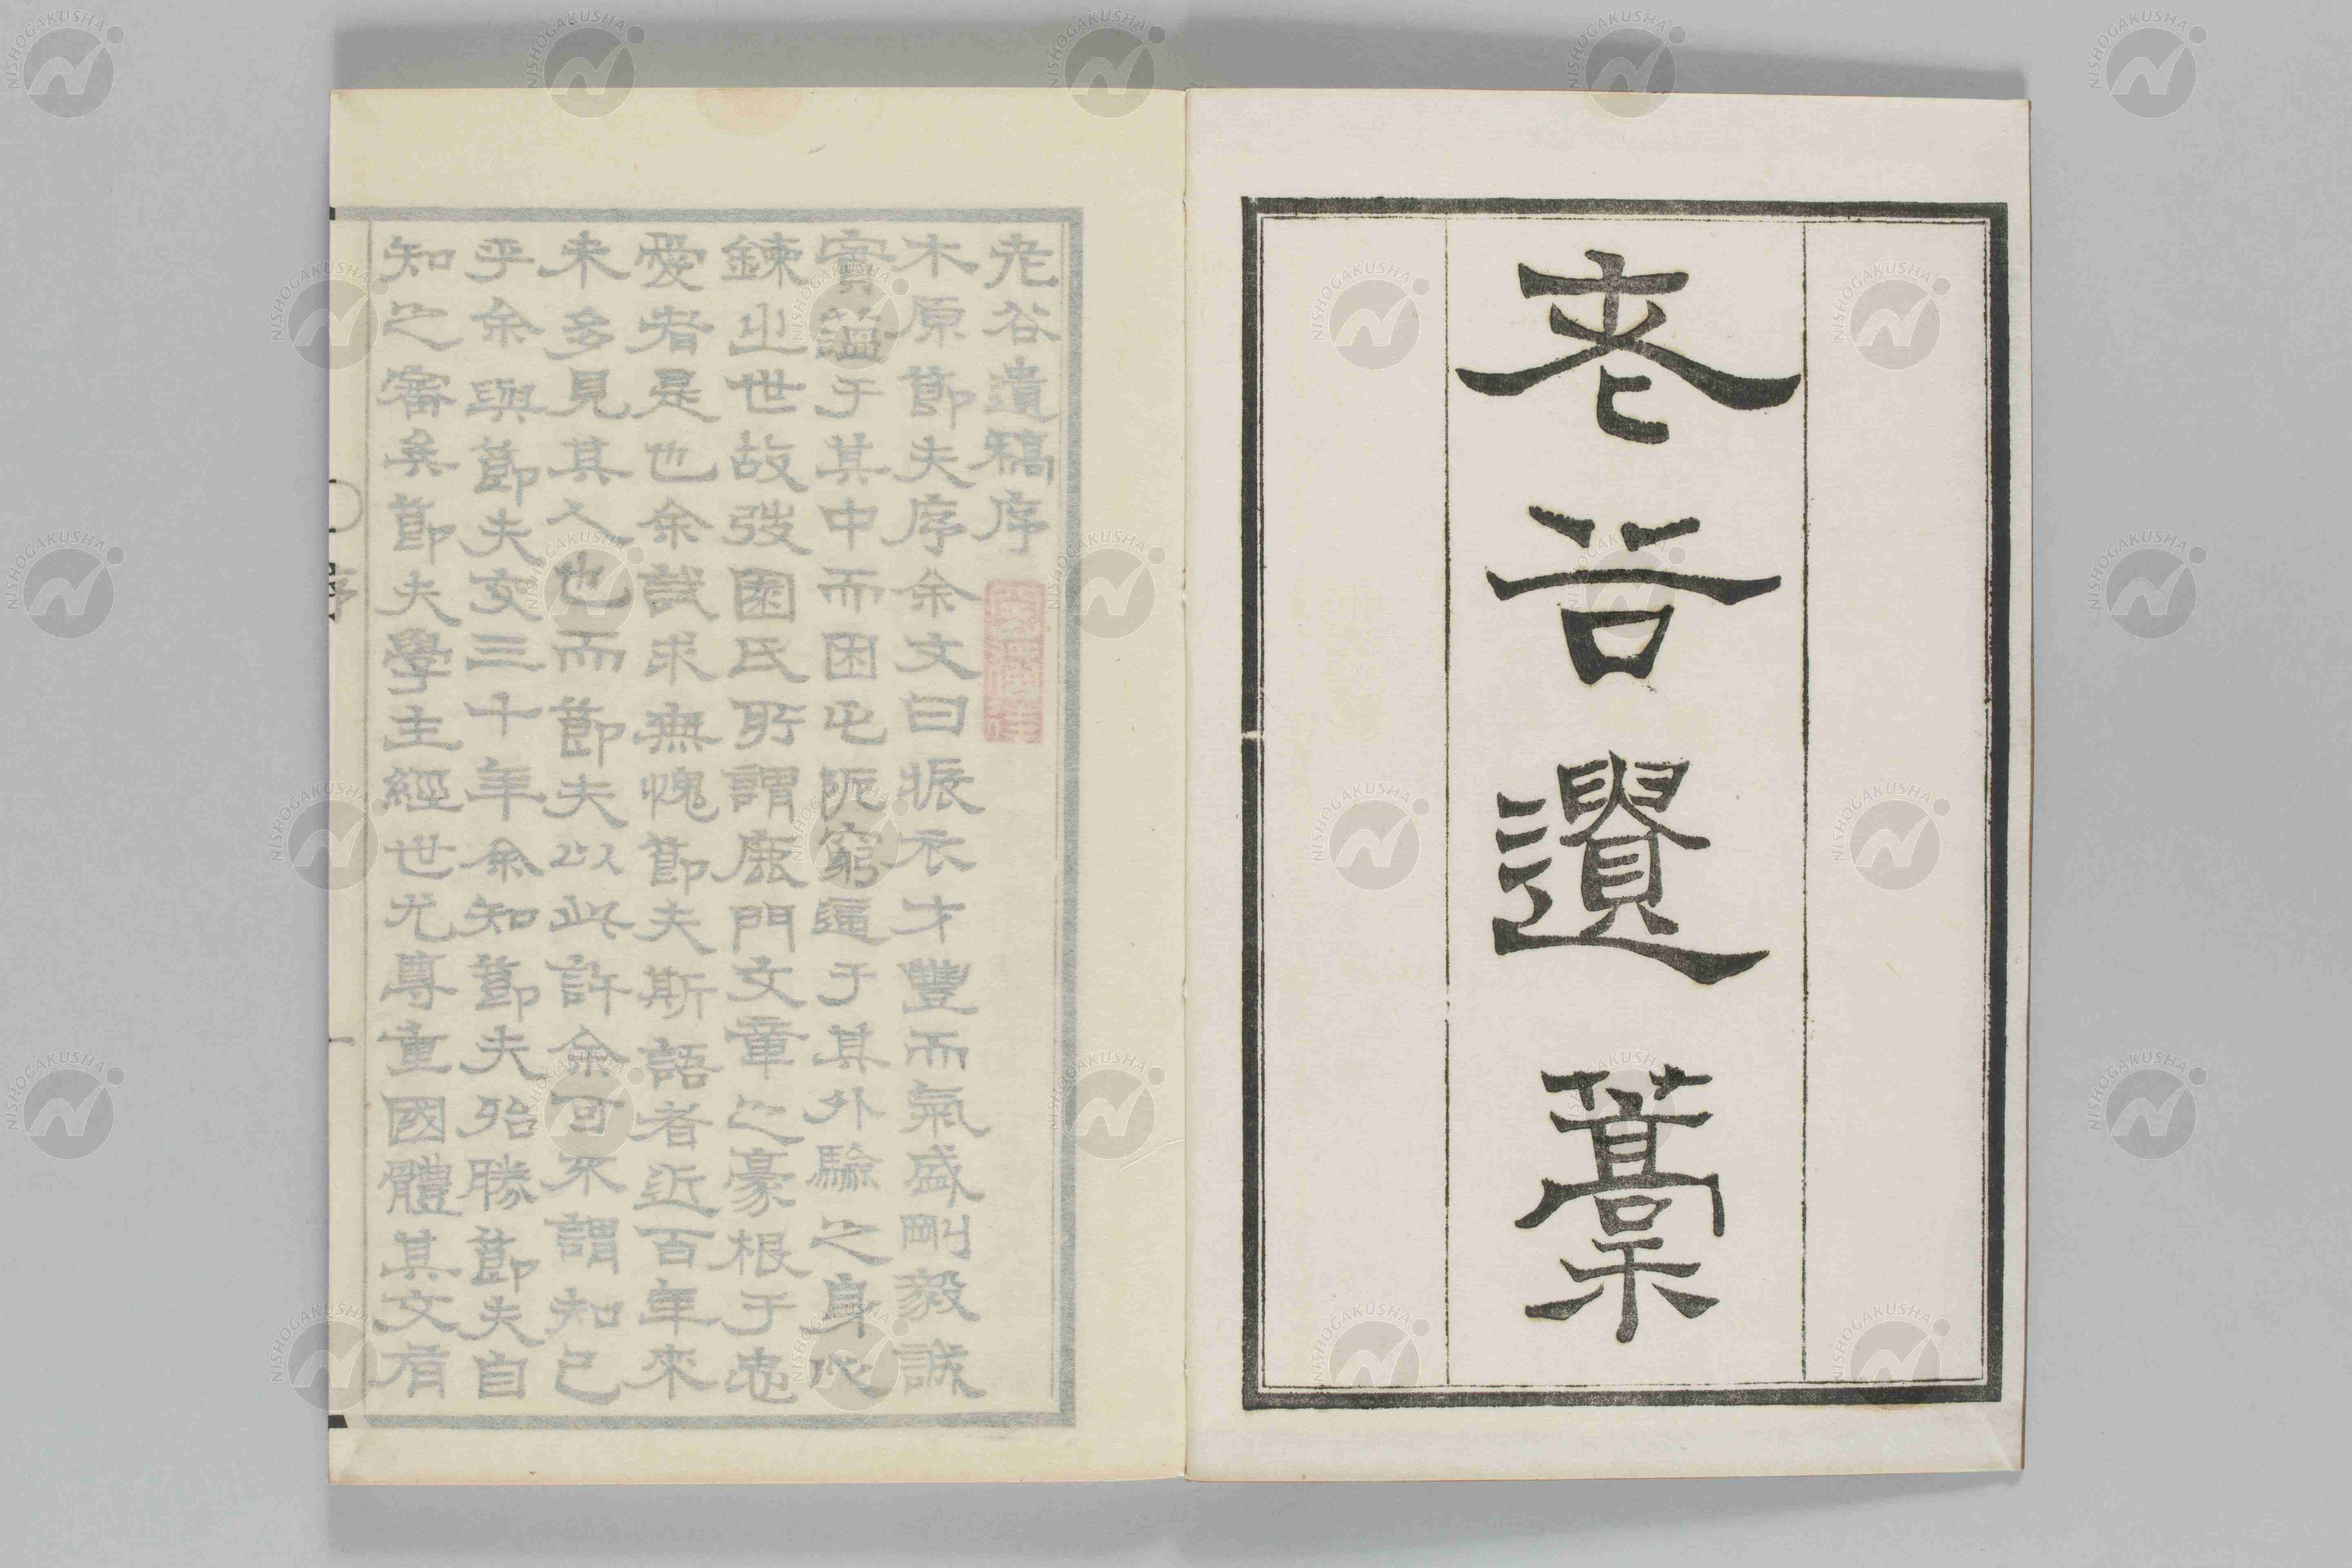 老谷遺藁
老谷遺稿序
木原節夫序余文曰振衣才豐而氣盛剛毅誠
實薀于其中而困屯阨窮逼于其外驗之身心
鍊之世故發園氏所謂鹿門文章之豪根于忠
愛者是也余試求無愧節夫斯語者近百年來
未多見其人也而節夫以此許余可不謂知己
乎余與節夫交三十年余知節夫殆勝節夫自
知之審矣節夫學主經世尤尊重國體其文有
序
一
NISHOGAKUSHA